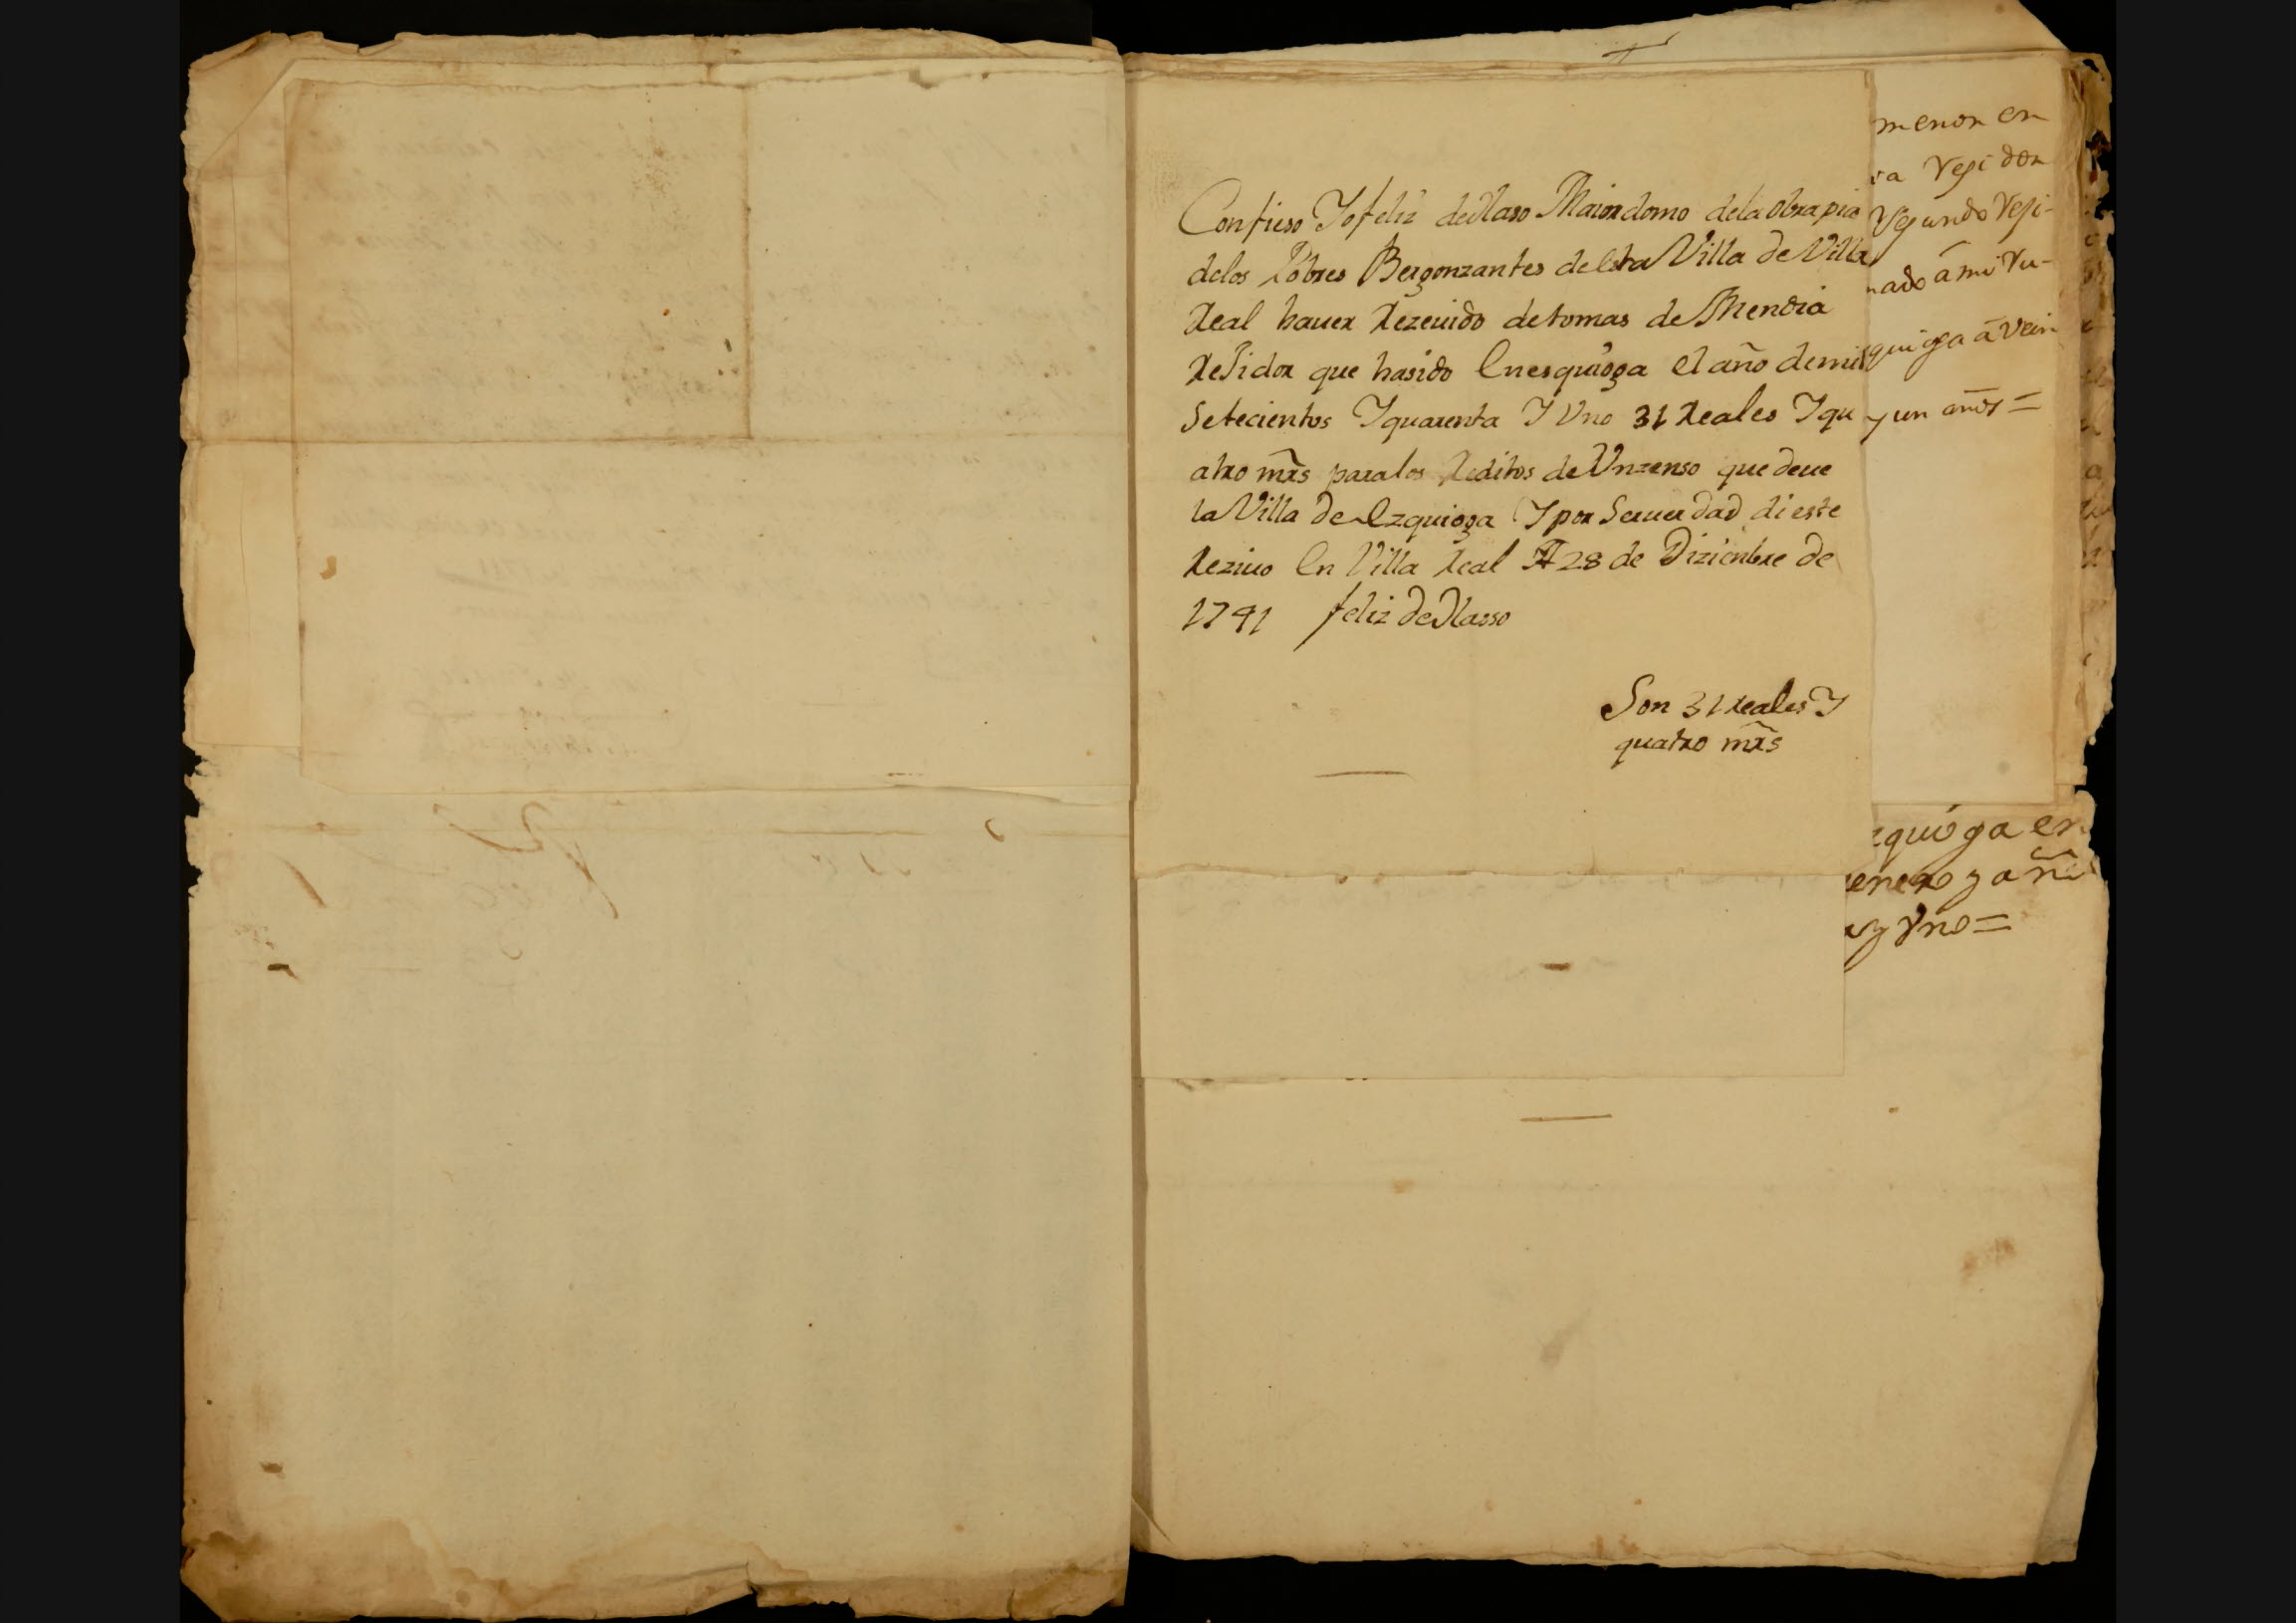 Confieso Yo feliz de Olaso Maiordomo dela obra pia
delos Pobres Bergonzantes de esta Villa de Villa
Real hauer Rezeuido de tomas de Mendia
ReJidor que hasido En esquioga El año de mil
Setecientos Y quarenta Y Uno 31 Reales Y qu
atro mrs para los Reditos de Un zenso que deue
la Villa de Ezquioga Y por Seuerdad di este
Reziuo En Villa Real A 28 de Dizienbre de
1741 feliz de Olasso
Son 31 Reales Y
quatro mrs
menor en
Segundo Reji-
nado á mi Ru-
quioga á Vein
y un años =
zquioga en
enero y añ
y Vno =